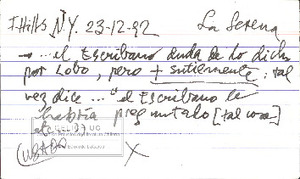 F. Hills N.Y. 23-12-92 La Serena
→ ... el Escribano duda de lo dicho
por Lobo, pero + sutilmente: tal
vez dice ... "el Escribano le
habría preguntado [tal cosa]
X